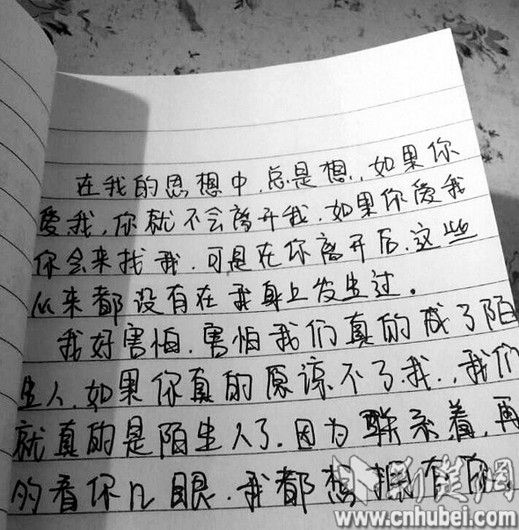 在我的思想中.总是想.如果你
爱我,你就不会离开我.如果你爱我
你会来找我.可是在你离开后.这些
从来都没有在我身上发生过。
我好害怕.害怕我们真的成了陌
生人.如果你真的原谅不了我..我们
就真的是陌生人了.因为联系着,再
的看你几眼.我都想拥有你.
荆楚网
www.cnhubei.com